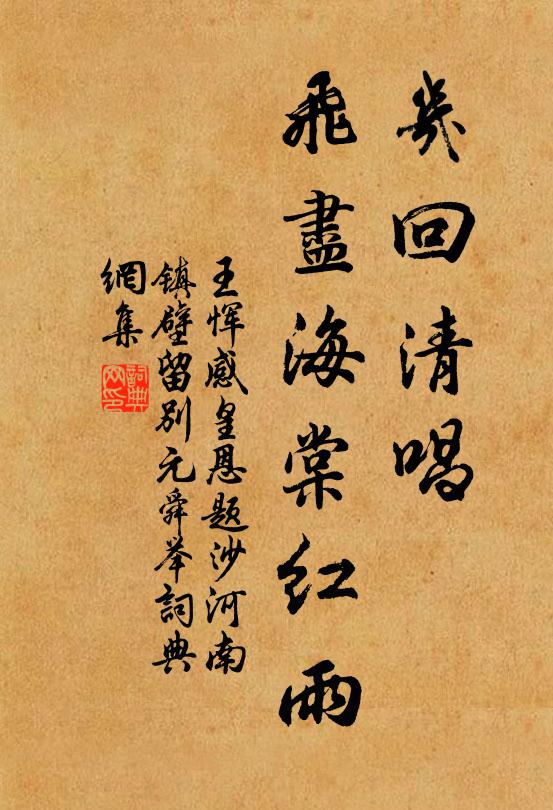 幾回清唱
飛盡海棠紅雨
王惲感皇恩題沙河南
鎮壁留別元舜举詞典
網集
詞典
网印